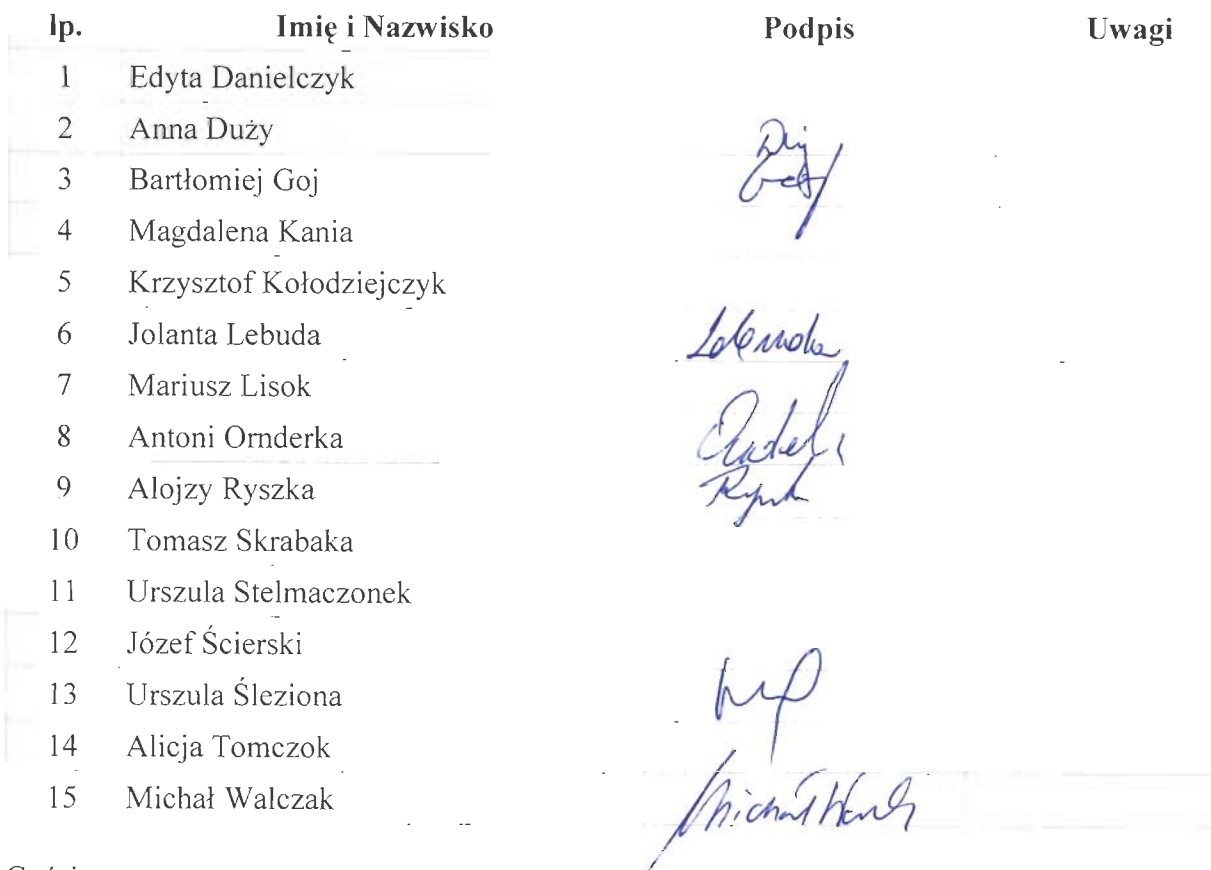 lp. Imię i Nazwisko Podpis Uwagi
1 Edyta Danielczyk
2 Anna Duży
3 Bartłomiej Goj
4 Magdalena Kania
5 Krzysztof Kołodziejczyk
6 Jolanta Lebuda
7 Mariusz Lisok
8 Antoni Ornderka
9 Alojzy Ryszka
10 Tomasz Skrabaka
11 Urszula Stelmaczonek
12 Józef Ścierski
13 Urszula Śleziona
14 Alicja Tomczok
15 Michał Walczak Michał